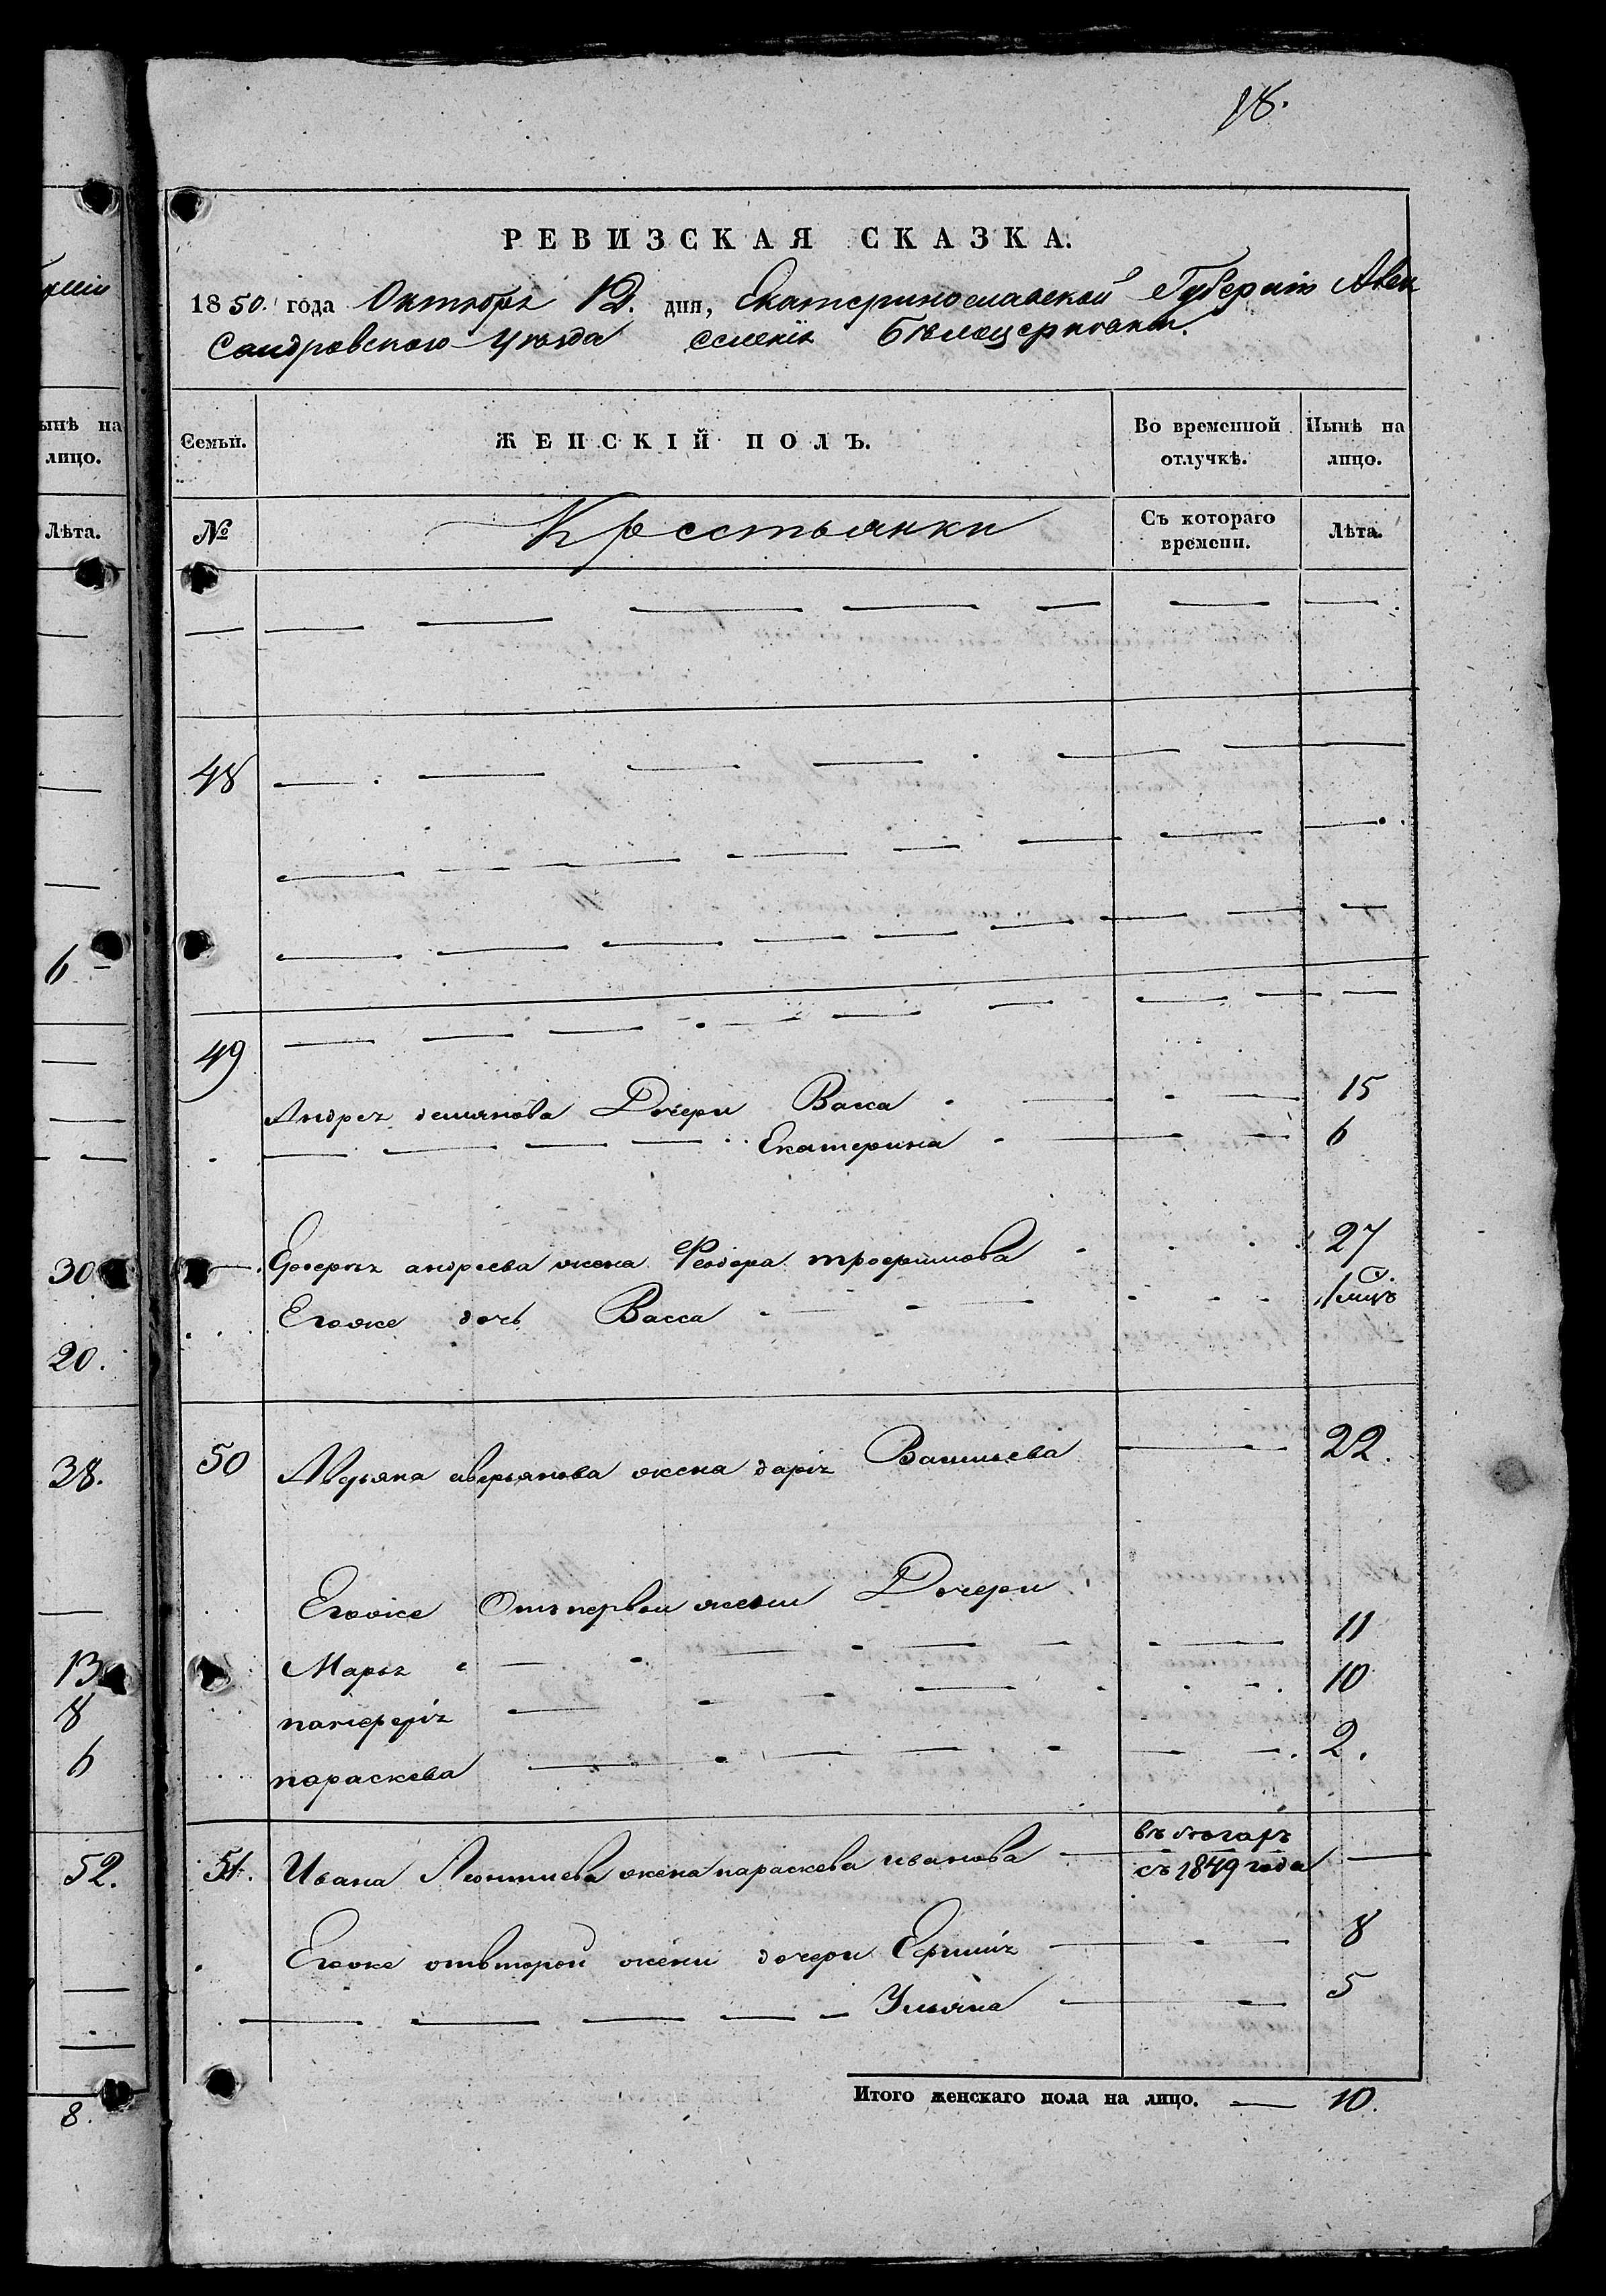 18.
РЕВИЗСКАЯ СКАЗКА.
1850. года Октября дня, Екатеринославской Губернии Алек
сандровского Уѣзда селенія Бѣлоцерковки.
ынѣ на
лицо.
Лѣта.
6
30
20.
38.
13
8
6
52.
8.
Семьи. ЖЕНСКІЙ ПОЛЪ. Во временной отлучкѣ. Нынѣ на лицо.
№ Крестьянки Съ котораго времени. Лѣта.
48
49
Андрея демянова Дочери Васса 15
Екатерина 6
андреева жена Феодора трофимова 27
Егоже дочь Васса 1
50 аверьянова жена дарія Васильева 22.
Егоже Отъ первои жены Дочери
Марья 11
10
параскева 2.
51. Ивана Леонтиева жена параскева иванова въ
съ 1849 года
Егоже отвторой жены дочери Ефимія 8
Ульяна 5
Итого женскаго пола на лицо. 10.